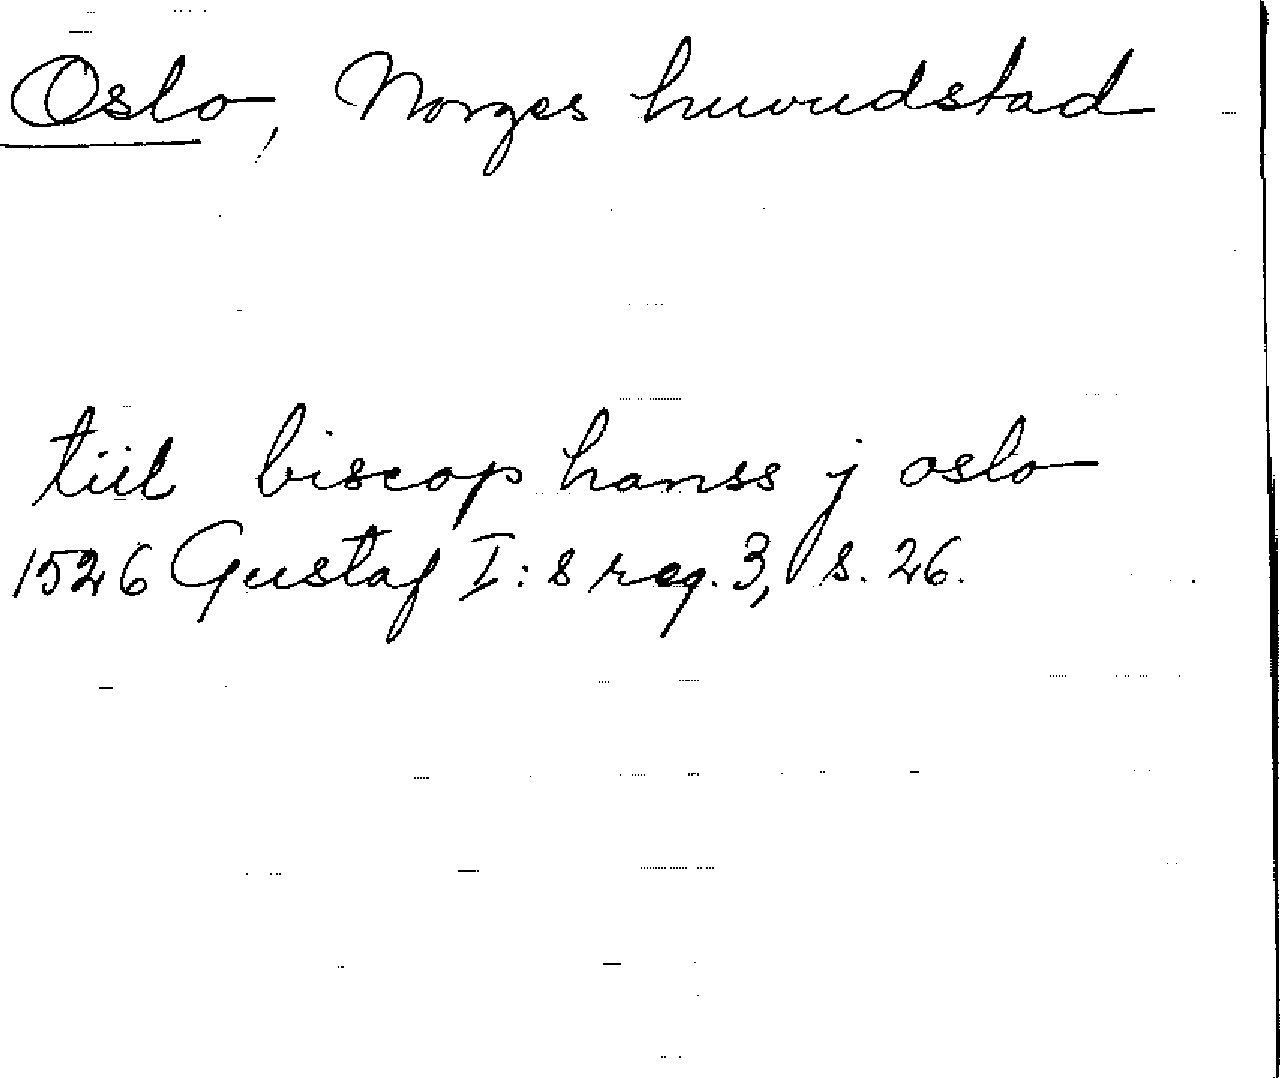 Oslo, Norges huvudstad
tiil biscop hanss j oslo
1526 Gustaf I:s reg. 3, s. 26.